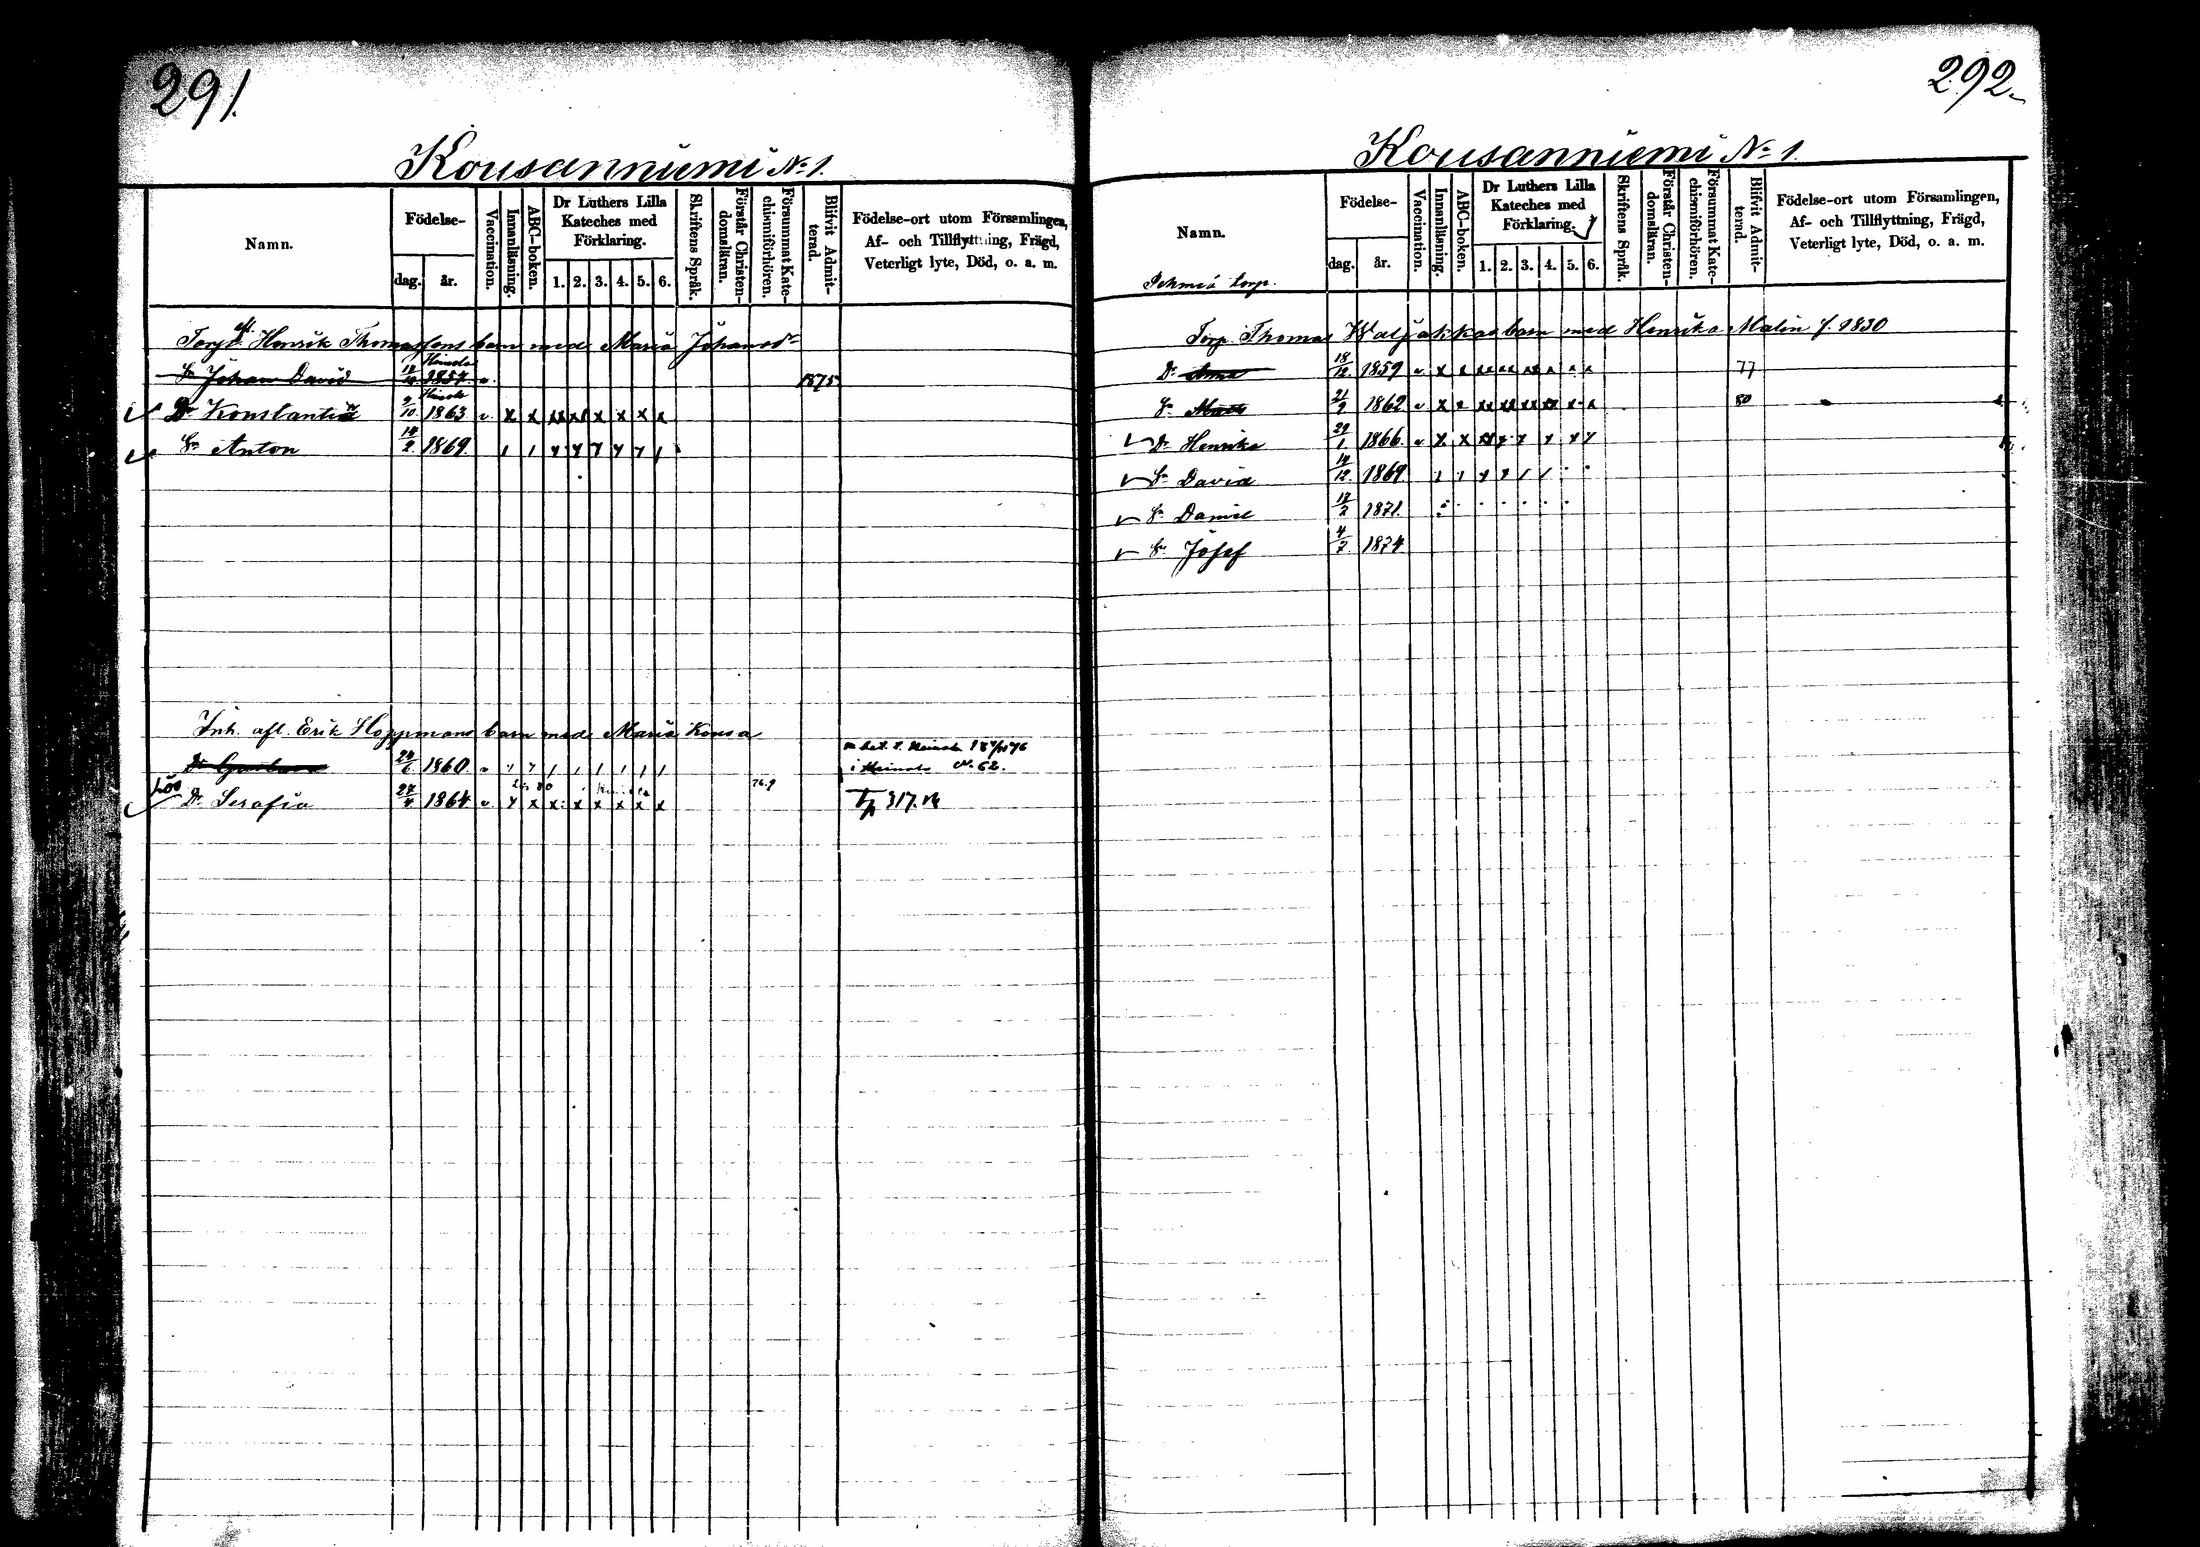 291.
Kousanniemi No 1.
Namn.
Födelse-
dag.
år.
Vaccination.
Innanläsning.
ABC-boken.
Dr Luthers Lilla Kateches med Förklaring.
1. 2. 3. 4. 5. 6.
Skriftens Språk.
Förstår Christendomsläran.
Försummat Katechismiförhören.
Blifvit Admitterad.
Födelse-ort utom Församlingen, Af- och Tillflyttning, Frägd, Veterligt lyte, Död, o. a. m.
Torp. Henrik Thomassons barn med Maria Johansdr
Sn Johan David 1857 v. 1875
Heinola
Dr Konstantia 9/10 1863 v. x x xx xx x x x x
Sn Anton 14/2 1869
Inh. afl. Erik Hoppmans barn med Maria Kousa
24/6 1860. v
i Heinola No 62.
Dr Serafia 1864 v x x x x x x x x 76.9 317.
292.
Kousanniemi No 1.
Namn.
torp.
Födelse-
dag.
år.
Vaccination.
Innanläsning.
ABC-boken.
Dr Luthers Lilla Kateches med Förklaring.
1. 2. 3. 4. 5. 6.
Skriftens Språk.
Förstår Christendomsläran.
Försummat Katechismiförhören.
Blifvit Admitterad.
Födelse-ort utom Församlingen, Af- och Tillflyttning, Frägd, Veterligt lyte, Död, o. a. m.
Torp. Thomas Waljakkas barn med Henrika Malin f. 1830
Dr Anna 18/12 1859 v x x 77
Sn Matts 1862 v x x 80
Dr Henrika 1866 v x x
Sn David 1869
Sn Daniel 1871.
Sn Josef 4/7 1874